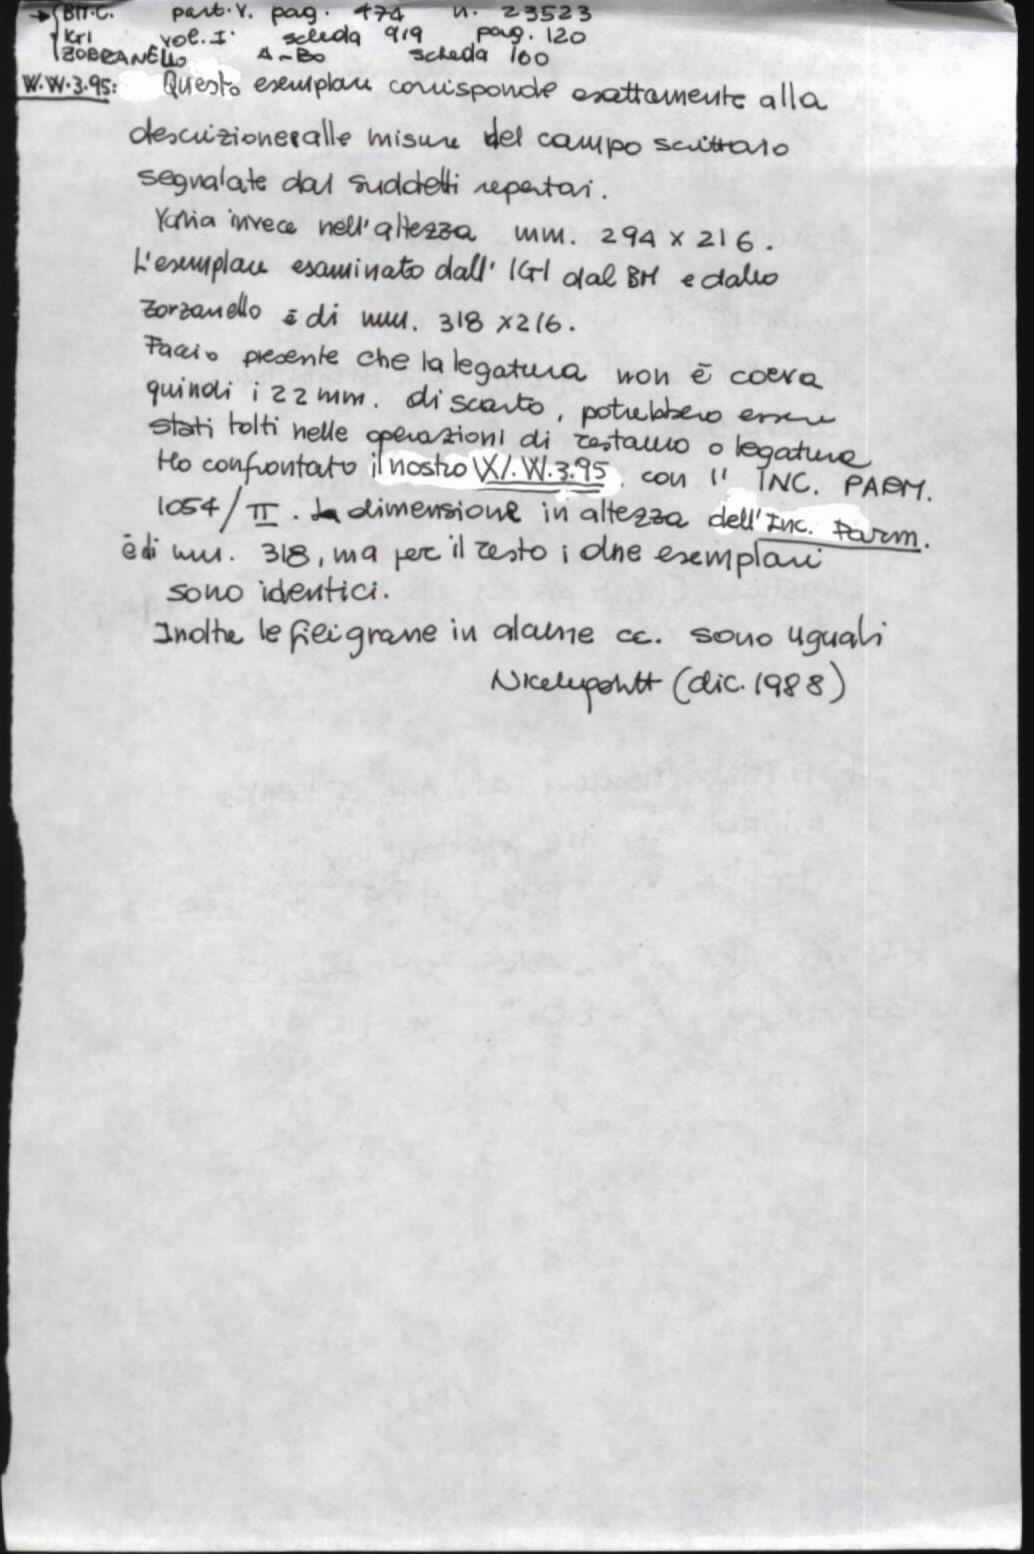 → BM.C. part. V. pag. 474 n. 23523
IGI vol. I. scheda 919 pag. 120
ZORZANELLO A-Bo scheda 160
W.W.3.95: Questo esemplare corrisponde esattamente alla
descrizione e alle misure del campo scrittorio
segnalate dai suddetti repertori.
Varia invece nell'altezza mm. 294 x 216.
L'esemplare esaminato dall' IGI dal BM e dallo
Zorzanello è di mm. 318 x 216.
Faccio presente che la legatura non è coeva
quindi i 22 mm. di scarto, potrebbero essere
stati tolti nelle operazioni di restauro o legatura
Ho confrontato il nostro W.W.3.95 con l' INC. PARM.
1054/II. La dimensione in altezza dell'Inc. Parm.
è di mm. 318, ma per il resto i due esemplari
sono identici.
Inoltre le filigrane in alcune cc. sono uguali
(dic. 1988)